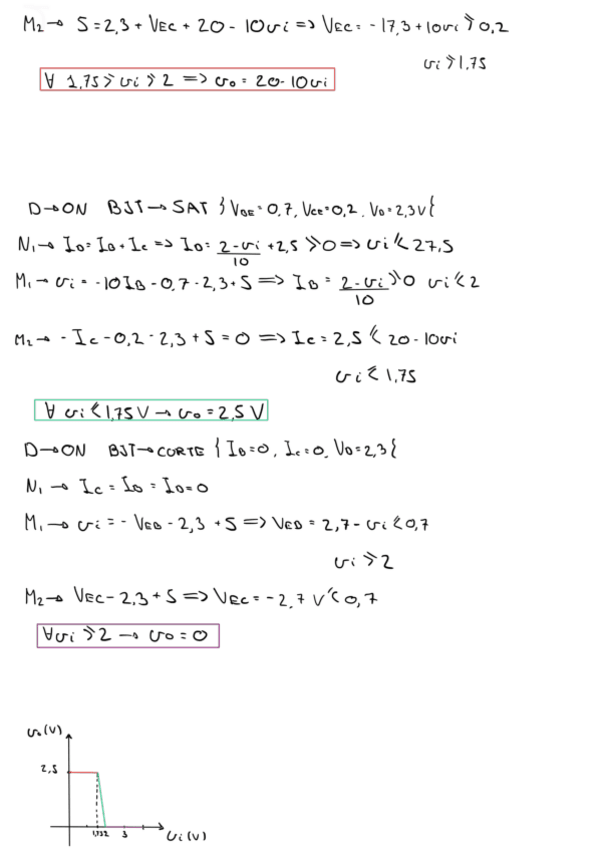 M₂→ 5=2,3+VEC+20-10vi=>VEC=-17,3+10vi⩾0,2
vi⩾1,75
∀ 1,75⩾vi⩾2 => vo=20-10vi
D→ON BJT→SAT }VBE=0,7, VCE=0,2, VD=2,3V{
N₁→ ID=IB+IC => ID= (2-vi)/10 +2,5 ⩾0=>vi⩽27,5
M₁→ vi=-10IB-0,7-2,3+5=>IB= (2-vi)/10 ⩾0 vi⩽2
M₂→ -IC-0,2-2,3+5=0 =>IC=2,5⩽20-10vi
vi⩽1,75
∀ vi⩽1,75V→vo=2,5V
D→ON BJT→CORTE {IB=0, IC=0, VD=2,3{
N₁ → IC=IB=ID=0
M₁→ vi=-VEB-2,3+5=>VEB=2,7-vi⩽0,7
vi⩾2
M₂→ VEC-2,3+5=>VEC=-2,7V'<0,7
∀vi⩾2→vo=0
vo(V)
2,5
3
vi(V)